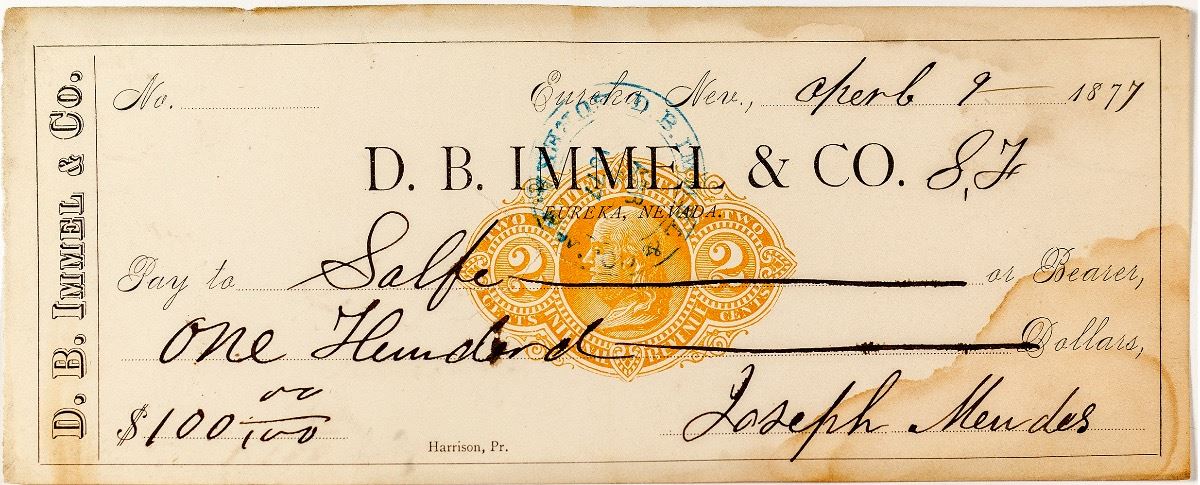 D. B. IMMEL & CO.
No.
Eureka Nev., Aperl 9 1877
D. B. IMMEL & CO. S, F
EUREKA, NEVADA.
Pay to Salfe or Bearer,
TWO TWO
2 2
CENTS CENTS
one Hunderd Dollars,
$100 00/100
Joseph Mendes
Harrison, Pr.